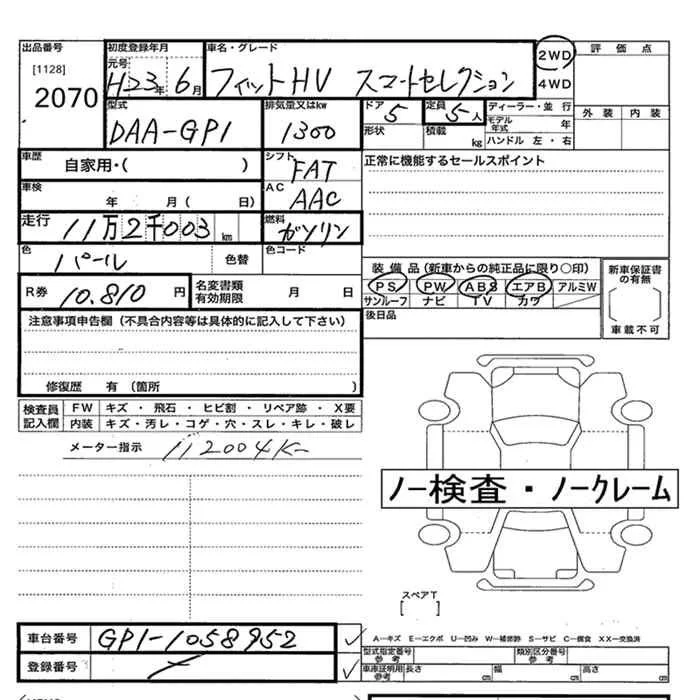 出品番号 初度登録年月 車名・グレード 2WD 評価点
[1128] 元号 H23年 6月 フィットHV スマートセレクション 4WD
2070
型式 排気量又はkw ドア 5 定員 5人 ディーラー・並行 外装 内装
DAA-GP1 1300 形状 積載 kg モデル年式 年
ハンドル 左・右
車歴 自家用・( ) シフト FAT 正常に機能するセールスポイント
車検 年 月( 日) AC AAC
走行 11万2千003km 燃料 ガソリン
色 パール 色替 色コード
装備品(新車からの純正品に限り○印) 新車保証書の有無
R券 10.810円 名変書類有効期限 月 日 PS PW ABS エアB アルミW
サンルーフ ナビ TV カワ
車載不可
注意事項申告欄(不具合内容等は具体的に記入して下さい) 後日品
修復歴 有(箇所 )
検査員記入欄 FW キズ・飛石・ヒビ割・リペア跡・X要
内装 キズ・汚レ・コゲ・穴・スレ・キレ・破レ
メーター指示 112004K
ノー検査・ノークレーム
スペアT
[ ]
車台番号 GP1-1058952 A―キズ E―エクボ U―凹み W―補修跡 S―サビ C―腐食 XX―交換済
型式指定番号 参考 類別区分番号 参考
登録番号 車庫証明用 参考 長さ cm 幅 cm 高さ cm